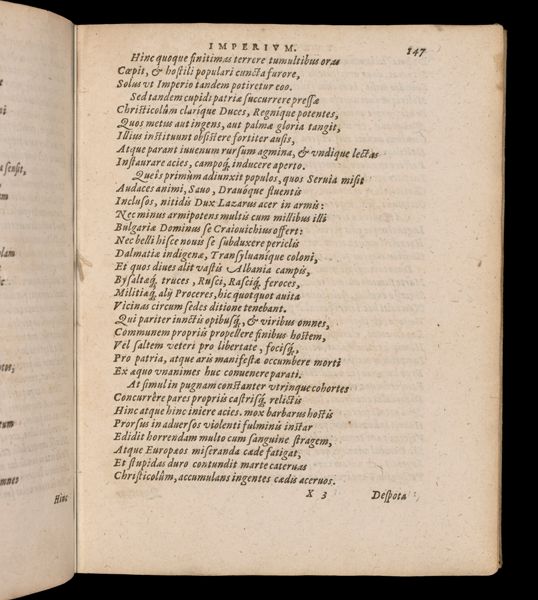 IMPERIVM. 147
Hinc quoque finitimas terrere tumultibus oras
Cœpit, & hostili populari cuncta furore,
Solus vt Imperio tandem potiretur eoo.
Sed tandem cupidi patriæ succurrere pressæ
Christicolûm clariq́ue Duces, Regniq́ue potentes,
Quos metus aut ingens, aut palmæ gloria tangit,
Illius instituunt obsistere fortiter ausis,
Atque parant iuuenum rursum agmina, & vndique lectas
Instaurare acies, campoq́, inducere aperto.
Queis primùm adiunxit populos, quos Seruia misit
Audaces animi, Sauo, Drauóque fluentis
Inclusos, nitidis Dux Lazarus acer in armis:
Nec minus armipotens multis cum millibus illi
Bulgariæ Dominus se Craiouichius offert:
Nec belli hisce nouis se subduxere periclis
Dalmatiæ indigenæ, Transyluaniq́ue coloni,
Et quos diues alit vastis Albania campis,
Bysaltæq́, truces, Rusci, Rasciq́, feroces,
Militiæq́, alij Proceres, hic quotquot auita
Vicinas circum sedes ditione tenebant.
Qui pariter iunctis opibusq́, & viribus omnes,
Communem propriis propellere finibus hostem,
Vel saltem veteri pro libertate, focisq́,
Pro patria, atque aris manifestæ occumbere morti
Ex æquo vnanimes huc conuenere parati.
At simul in pugnam constanter vtrinque cohortes
Concurrêre pares propriis castrisq́, relictis
Hinc atque hinc iniere acies. mox barbarus hostis
Prorsus in aduersos violenti fulminis instar
Edidit horrendam multo cum sanguine stragem,
Atque Europæos miseranda cæde fatigat,
Et stupidas duro contundit marte cateruas
Christicolûm, accumulans ingentes cædis aceruos.
X 3 Despota
Hinc